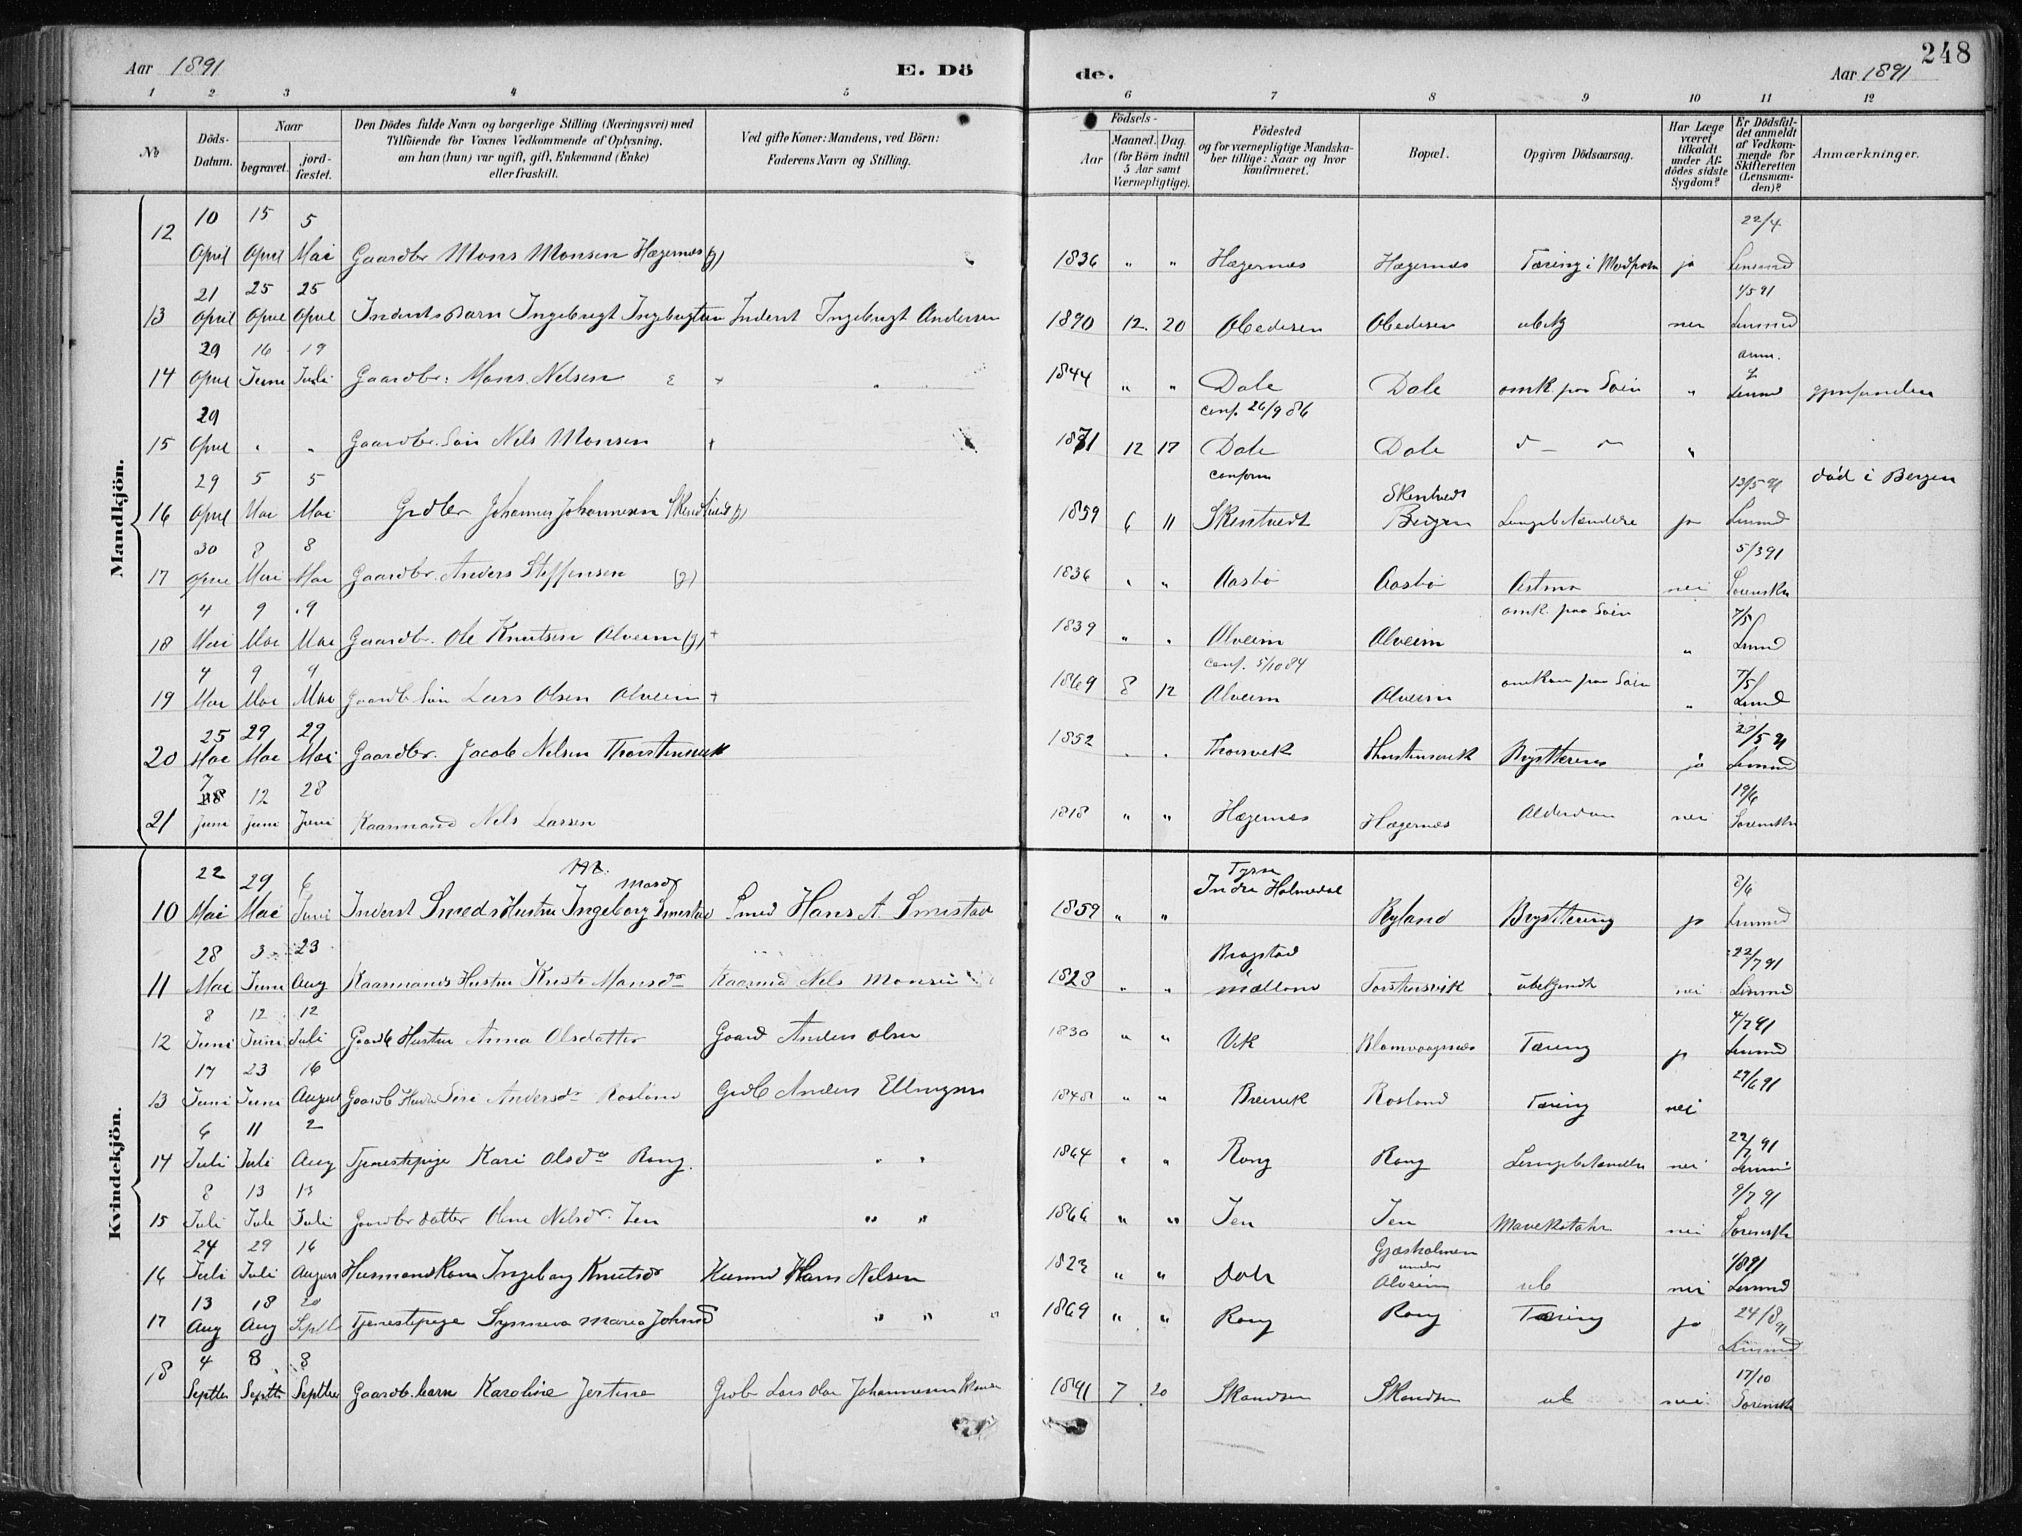 248
Aar 1891 E. Dö de. Aar 1891
1 2 3 4 5 6 7 8 9 10 11 12
No
Döds-Datum.
Naar
begravet.
jordfæstet.
Den Dödes fulde Navn og borgerlige Stilling (Næringsvei) med
Tilföiende for Voxnes Vedkommende af Oplysning,
om han (hun) var ugift, gift, Enkemand (Enke)
eller fraskilt.
Ved gifte Koner: Mandens, ved Börn:
Faderens Navn og Stilling.
Födsels-
Aar
Maaned. Dag.
(for Börn indtil
5 Aar samt
Værnepligtige).
Födested
og for værnepligtige Mandskaber tillige: Naar og hvor
konfirmeret.
Bopæl.
Opgiven Dödsaarsag.
Har Læge
været
tilkaldt
under Afdödes sidste
Sygdom?
Er Dödsfaldet anmeldt
af Vedkommende for
Skifteretten
(Lensmanden)?
Anmærkninger.
Mandkjön.
12 10 April 15 April 5 Mai Gaardbr Mons Monsen Hægernes (g) 1836 " " Hægernes Hægernes Tæring i ja 22/4 Lensmd
13 21 April 25 April 25 April Inderst Barn Ingebrigt Ingebrigtsen Inderst Ingebrigt Andersen 1890 12 20 ubekj nei 1/5 91 Lensmd
14 29 April 16 Juni 19 Juli Gaardbr. Mons Nelsen + 1844 " " Dale Dale omk. paa Söen " anm. Lensmd gjenfunden
15 29 April " " Gaardbr. Sön Nels Monsen + 1871 12 17 conf. 26/9 86 Dale Dale d — o "
16 29 April 5 Mai 5 Mai Grdbr Johannes Johannesen Skentvedt (g) 1859 6 11 conform Skentvedt Skentvedt Bergen Lungebetændelse ja 13/5 91 Lensmd död i Bergen
17 30 April 8 Mai 8 Mai Gaardbr. Anders Steffensen (g) 1836 " " Aasbö Aasbö Astma nei 5/3 91 Sorenskr
18 4 Mai 9 Mai 9 Mai Gaardbr. Ole Knutsen Alveim (g) + 1839 " " Alveim Alveim omk. paa Söen " 7/5 Lensmd
19 4 Mai 9 Mai 9 Mai Gaardb. Sön Lars Olsen Alveim + 1869 8 12 conf. 5/10 84 Alveim Alveim omkom paa Söen " 7/5 Lensmd
20 25 Mai 29 Mai 29 Mai Gaardbr. Jacob Nelsen Thorstensvik 1852 " " Thorsvik Thorstensvik Brysttæring ja 29/5 91 Lensmd
21 7 Juni 12 Juni 28 Juni Kaarmand Nels Larsen 1818 " " Hægernes Hægernes Alderdom nei 19/6 Sorenskr
Kvindekjön.
10 22 Mai 29 Mai 6 Juni Inderst Smeds Hustru Ingeborg Monsdr Smestad Smed Hans A. Smestad 1859 " " Indre Holmedal Ryland Brysttæring ja 8/6 Lensmd
11 28 Mai 3 Juni 23 Aug Kaarmands Hustru Kristi Monsdr Kaarmd Nels Monsen 1823 " " Bragstad Mælland Torstensvik ubekjendt nei 22/7 91 Lensmd
12 8 Juni 12 Juni 12 Juli Gaardb Hustru Anna Olsdatter Gaard Anders Olsen 1830 " " Vik Blomvaagnes Tæring ja 4/7 91 Lensmd
13 17 Juni 23 Juni 16 August Gaardb Hustru Siri Andersdr Rosland Grdb Anders Ellingsen 1848 " " Breivik Rosland Tæring nei 29/6 91
14 6 Juli 11 Juli 2 Aug Tjenestepige Kari Olsdr Rong. " " 1864 " " Rong Rong Lungebetændelse nei 22/7 91 Lensmd
15 8 Juli 13 Juli 13 Juli Gaardbr datter Oline Nelsdr. Ien " " 1866 " " Ien Ien Mavekatahr nei 9/7 91 Sorenskr
16 24 Juli 29 Juli 16 August Husmandskone Ingeborg Knutsdr Husmd Hans Nelsen 1823 " " Dale Gjæsholmen under Alveim ub nei 1/8 91 Lensmd
17 13 Aug 18 Aug 20 Septb Tjenestepige Synneva Maria Johnsd " " " 1869 " " Rong Rong Tæring ja 24/8 91 Lensmd
18 4 Septbr 8 Septbr 8 Septber Gaardb. barn Karoline Jertine Grdb Lars Olai Johannesen 1891 7 20 Skandsen Skandsen ub nei 17/10 Sorenskr